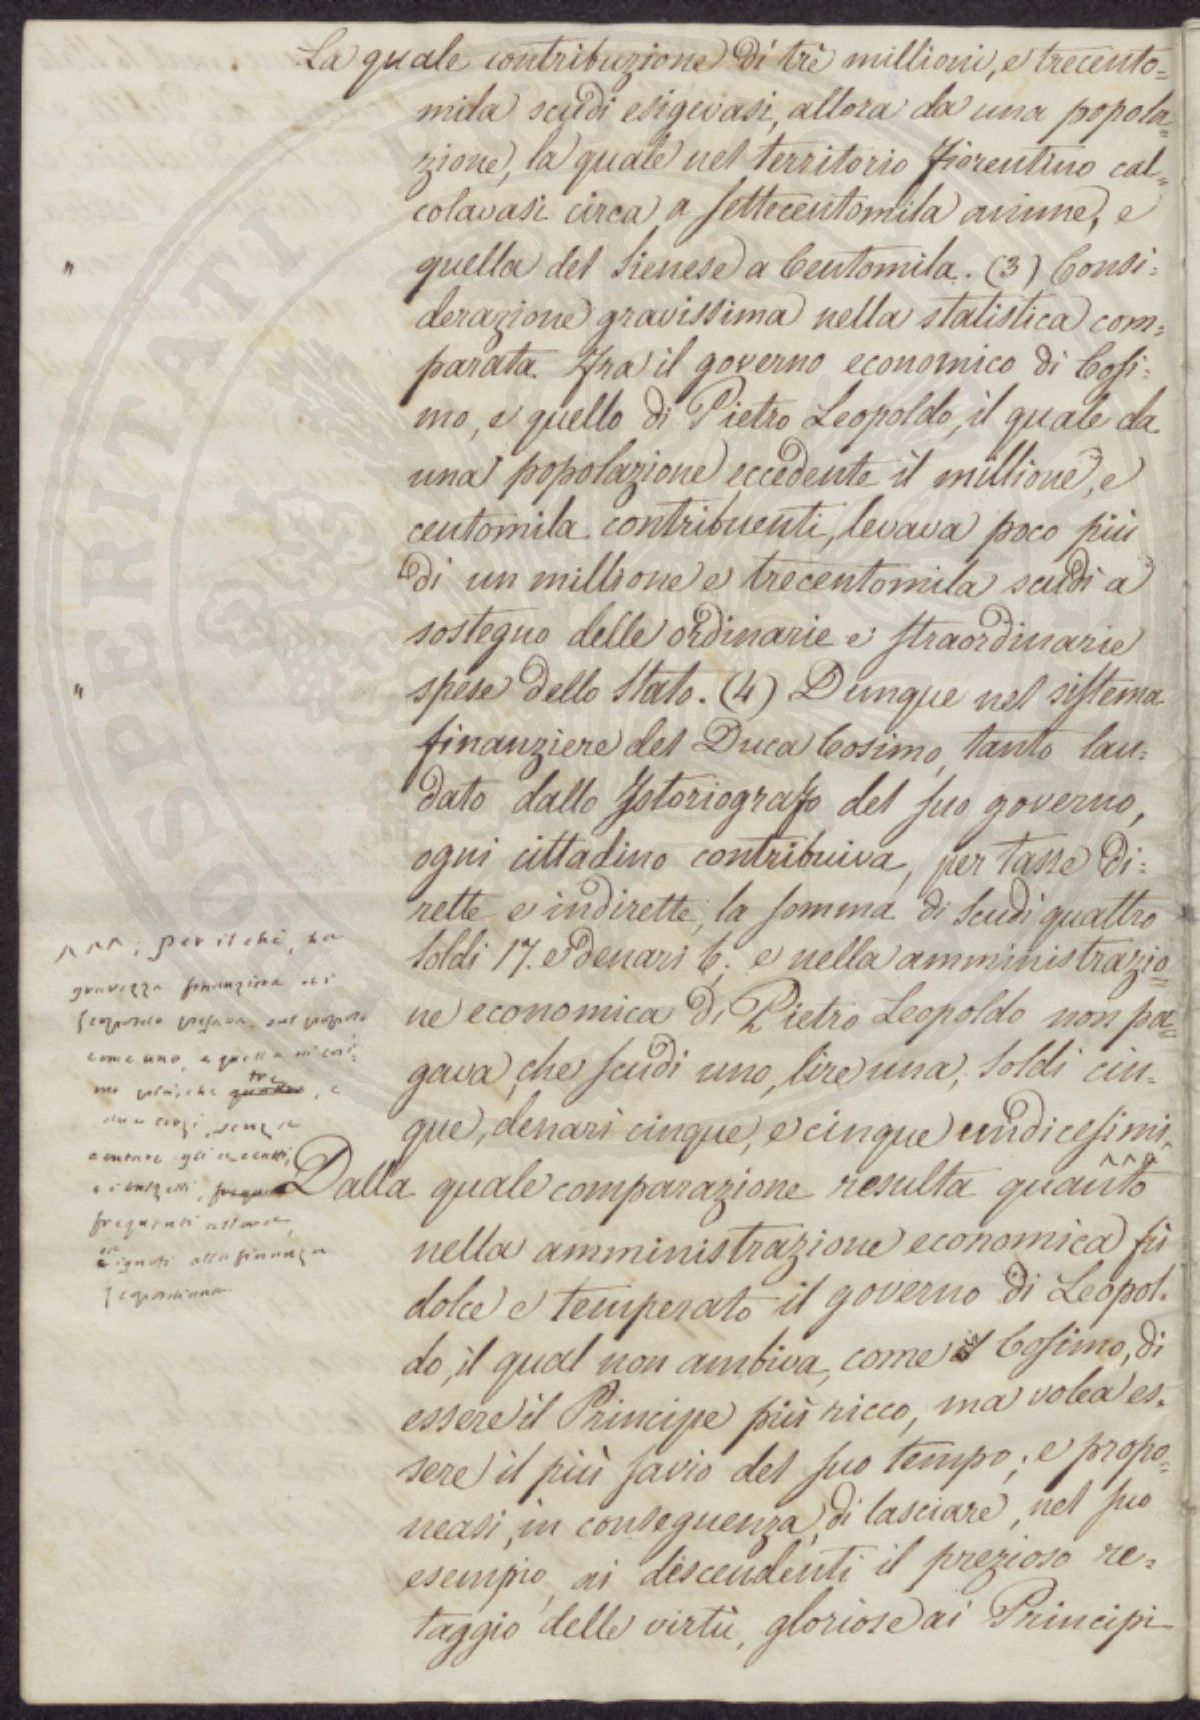 La quale contribuzione di trè millioni, e trecento=
mila scudi esigevasi, allora da una popola=
zione, la quale nel territorio Fiorentino cal=
colavasi circa a settecentomila anime, e
quella del Sienese a Centomila. (3) Consi=
derazione gravissima nella statistica com=
parata fra il governo economico di Cosi=
mo, e quello di Pietro Leopoldo, il quale da
una popolazione eccedente il millione, e
centomila contribuenti, levava poco più
di un millione e trecentomila scudi a
sostegno delle ordinarie e straordinarie
spese dello Stato. (4) Dunque nel sistema
finanziere del Duca Cosimo, tanto lau=
dato dallo Istoriografo del suo governo,
ogni cittadino contribuiva, per tasse di=
rette e indirette, la somma di Scudi quattro
soldi 17. e denari 6; e nella amministrazio=
ne economica di Pietro Leopoldo non pa=
gava, che scudi uno, lire una, soldi cin=
que, denari cinque, e cinque undicesimi.
Dalla quale comparazione resulta quanto
nella amministrazione economica fù
dolce e temperato il governo di Leopol=
do, il qual non ambiva, come il Cosimo, di
essere il Principe più ricco, ma volea es=
sere il più savio del suo tempo; e propo=
neasi, in conseguenza, di lasciare, nel suo
esempio, ai descendenti il prezioso re=
taggio delle virtù, gloriose ai Principi
^^^; per il chè, la
gravezza finanziera di
Leopoldo pesava sul popolo
come uno, e quella di Cosi=
mo più, che tre, e
due terzi, senza
contare gli
frequenti allora,
e ignoti alla finanza
Leopoldiana.